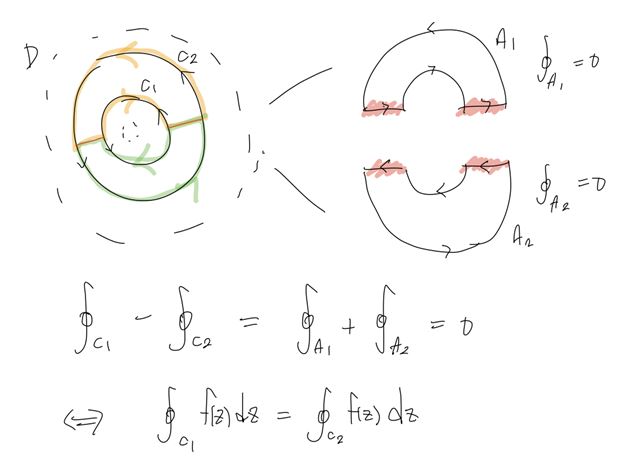 D
C₂
C₁
A₁ ∮_A₁ = 0
∮_A₂ = 0
A₂
∮_C₁ - ∮_C₂ = ∮_A₁ + ∮_A₂ = 0
⇔ ∮_C₁ f(z) dz = ∮_C₂ f(z) dz